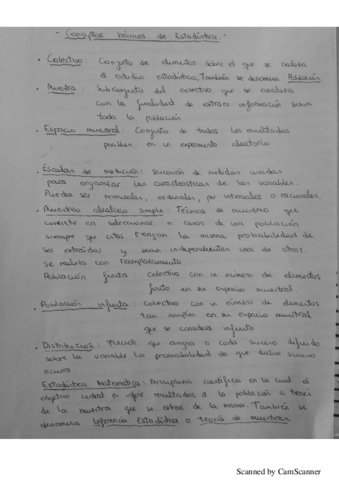 - Conceptos básicos de Estadística -
• Colectivo: Conjunto de elementos sobre el que se realiza
el estudio estadístico. También se denomina Población.
• Muestra: Subconjunto del colectivo que se analiza
con la finalidad de extraer información sobre
toda la población
• Espacio muestral: Conjunto de todos los resultados
posibles en un experimento aleatorio
• Escalas de medición: Sucesión de medidas usadas
para organizar las características de las variables.
Puedes ser nominales, ordinales, por intervalos o racionales.
• Muestreo aleatorio simple: Técnica de muestreo que
consiste en seleccionar n casos de una población
siempre que estos tengan la misma probabilidad de
ser extraídos y sean independientes unos de otros.
se realiza con reemplazamiento.
Población finita: colectivo con un número de elementos
finito en su espacio muestral.
• Población infinita: colectivo con un número de elementos
tan amplio en su espacio muestral
que se considera infinito
• Distribución: función que asigna a cada suceso definido
sobre la variable la probabilidad de que dicho suceso
ocurra
Estadística Matemática: Disciplina científica en la cual el
objetivo central es inferir resultados d la población a través
de la muestra que se extrae de la misma. También se
denomina Inferencia Estadística o teoría de muestras
Scanned by CamScanner